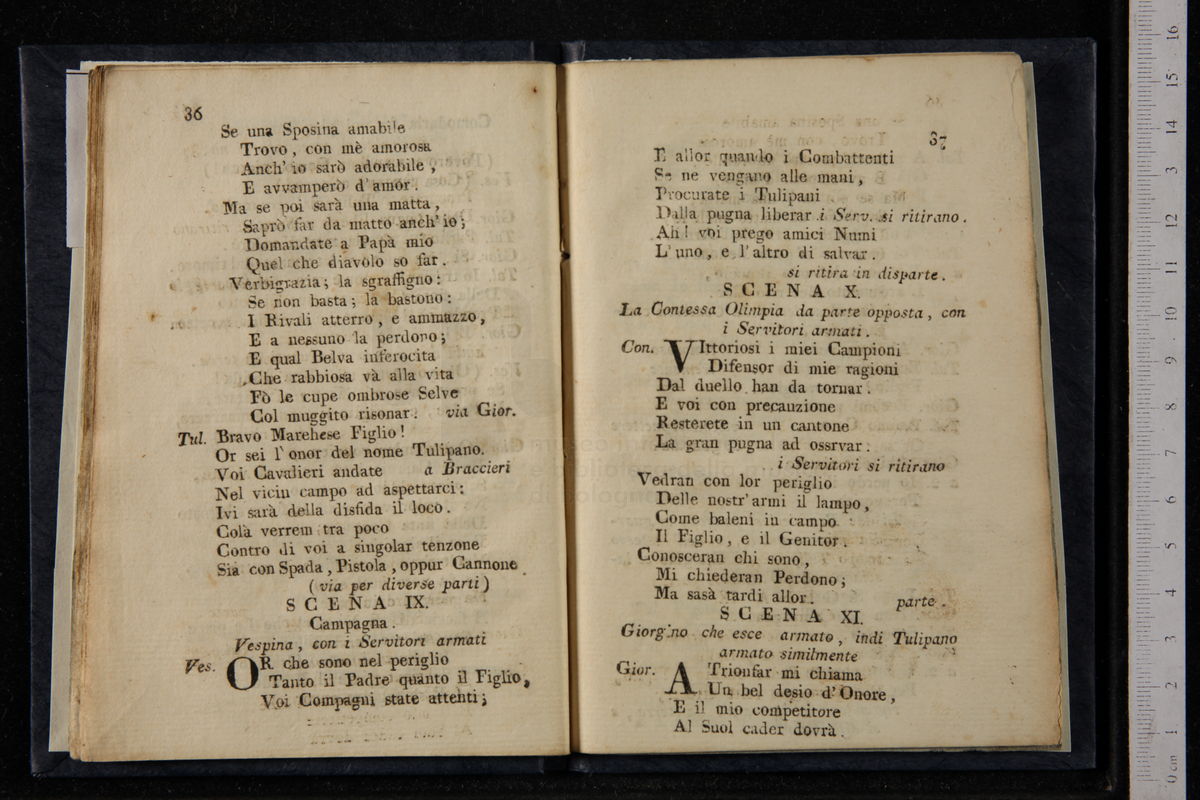 36
Se una Sposina amabile
Trovo, con mè amorosa
Anch' io sarò adorabile,
E avvamperò d'amor.
Ma se poi sarà una matta,
Saprò far da matto anch' io;
Domandate a Papà mio
Quel che diavolo so far.
Verbigrazia; la sgraffigno:
Se non basta; la bastono:
I Rivali atterro, e ammazzo,
E a nessuno la perdono;
E qual Belva inferocita
Che rabbiosa và alla vita
Fò le cupe ombrose Selve
Col muggito risonar. via Gior.
Tul. Bravo Marehese Figlio!
Or sei l'onor del nome Tulipano.
Voi Cavalieri andate a Braccieri
Nel vicin campo ad aspettarci:
Ivi sarà della disfida il loco.
Colà verrem tra poco
Contro di voi a singolar tenzone
Sia con Spada, Pistola, oppur Cannone
(via per diverse parti)
SCENA IX.
Campagna.
Vespina, con i Servitori armati
Ves. OR che sono nel periglio
Tanto il Padre quanto il Figlio,
Voi Compagni state attenti;
37
E allor quando i Combattenti
Se ne vengano alle mani,
Procurate i Tulipani
Dalla pugna liberar. i Serv. si ritirano.
Ah! voi prego amici Numi
L'uno, e l'altro di salvar.
si ritira in disparte.
SCENA X.
La Contessa Olimpia da parte opposta, con
i Servitori armati.
Con. VIttoriosi i miei Campioni
Difensor di mie ragioni
Dal duello han da tornar.
E voi con precauzione
Resterete in un cantone
La gran pugna ad ossrvar:
i Servitori si ritirano
Vedran con lor periglio
Delle nostr'armi il lampo,
Come baleni in campo
Il Figlio, e il Genitor.
Conosceran chi sono,
Mi chiederan Perdono;
Ma sasà tardi allor. parte.
SCENA XI.
Giorgino che esce armato, indi Tulipano
armato similmente
Gior. A Trionfar mi chiama
Un bel desio d'Onore,
E il mio competitore
Al Suol cader dovrà.
0 cm 1 2 3 4 5 6 7 8 9 10 11 12 13 14 15 16